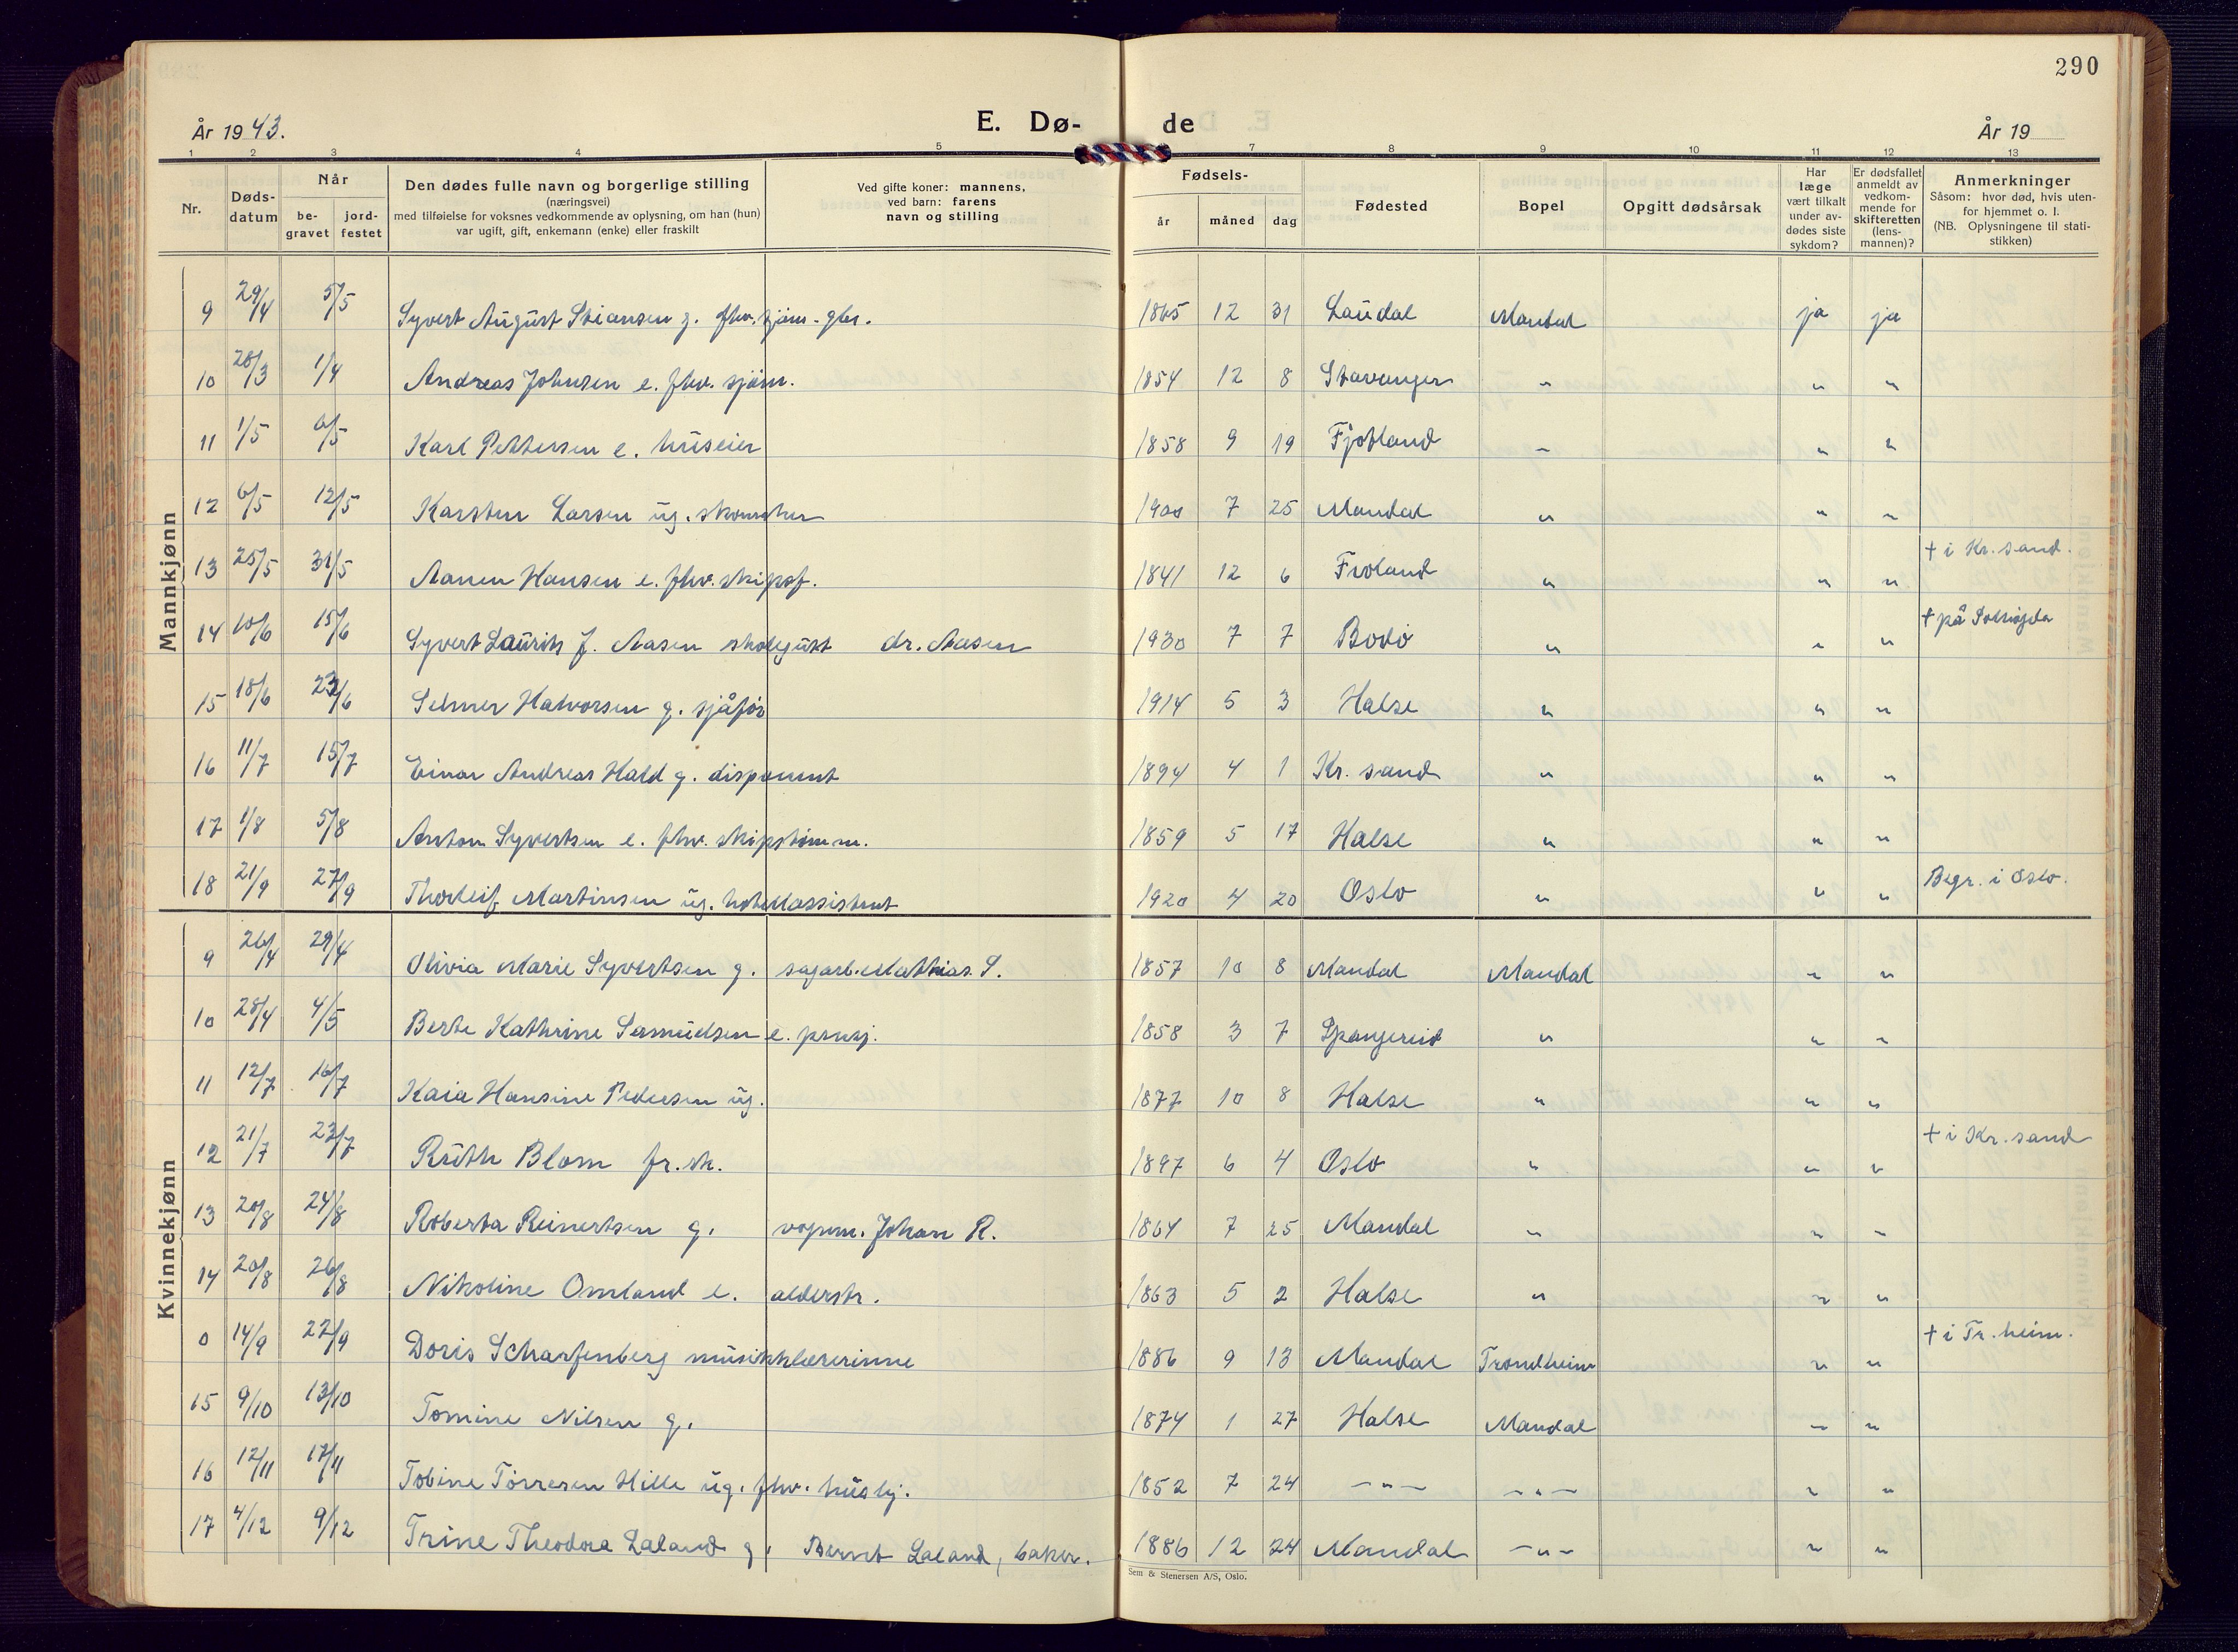 290
År 1943.
E. Dø-
de
År 19
1 2 3 4 5 7 8 9 10 11 12 13
Nr.
Døds-
datum
Når
be-
gravet
jord-
festet
Den dødes fulle navn og borgerlige stilling
(næringsvei)
med tilføielse for voksnes vedkommende av oplysning, om han (hun)
var ugift, gift, enkemann (enke) eller fraskilt
Ved gifte koner: mannens,
ved barn: farens
navn og stilling
Fødsels-
år
måned
dag
Fødested
Bopel
Opgitt dødsårsak
Har
læge
vært tilkalt
under av-
dødes siste
sykdom?
Er dødsfallet
anmeldt av
vedkom-
mende for
skifteretten
(lens-
mannen)?
Anmerkninger
Såsom: hvor død, hvis uten-
for hjemmet o. l.
(NB. Oplysningene til stati-
stikken)
Mannkjønn
9 29/4 5/5 Syvert August Stiansen g. fhv. sjøm.-gbr. 1865 12 31 Laudal Mandal ja ja
10 28/3 1/4 Andreas Johnsen e. fhv. sjøm. 1854 12 8 Stavanger " " "
11 1/5 6/5 Karl Pettersen e. huseier 1858 9 19 Fjotland " " "
12 6/5 12/5 Karsten Larsen ug. skomaker 1900 7 25 Mandal " " "
13 25/5 31/5 Aanen Hansen e. fhv. skipsf. 1841 12 6 Froland " " " † i Kr. sand.
14 10/6 15/6 Syvert Laurits J. Aasen skolegutt dr. Aasen 1930 7 7 Bodø " " " † på
15 18/6 /6 Selmer Halvorsen g. sjåfør 1914 5 3 Halse " " "
16 11/7 15/7 Einar Andreas Hald g. disponent 1894 4 1 Kr. sand " " "
17 1/8 5/8 Anton Syvertsen e. fhv. skipstømm. 1859 5 17 Halse " " "
18 21/9 27/9 Thorleif Martinsen ug. hotellassistent 1920 4 20 Oslo " " " Begr. i Oslo.
Kvinnekjønn
9 26/4 29/4 Olivia Marie Syvertsen g. sagarb. Mathias S. 1857 10 8 Mandal Mandal " "
10 28/4 4/5 Berte Kathrine Samuelsen e. pensj. 1858 3 7 Spangereid " " "
11 12/7 16/7 Kaia Hansine Pedersen ug. 1877 10 8 Halse " " "
12 21/7 23/7 Ruth Blom fr.sk. 1897 6 4 Oslo " " " † i Kr. sand
13 20/8 24/8 Roberta Reinertsen g. vognm. Johan R. 1864 7 25 Mandal " " "
14 20/8 26/8 Nikoline Omland e. alderstr. 1863 5 2 Halse " " "
0 14/9 22/9 Doris Scharfenberg musikklærerinne 1886 9 13 Mandal Trondheim " " † i Tr. heim.
15 9/10 13/10 Tomine Nilsen g. 1874 1 27 Halse Mandal " "
16 12/11 17/11 Tobine Tørresen Hille ug. fhv. hushj. 1852 7 24 -"- -"- " "
17 4/12 9/12 Trine Theodora Laland g. Bernt Laland, baker. 1886 12 24 Mandal -"- " "
Sem & Stenersen A/S, Oslo.